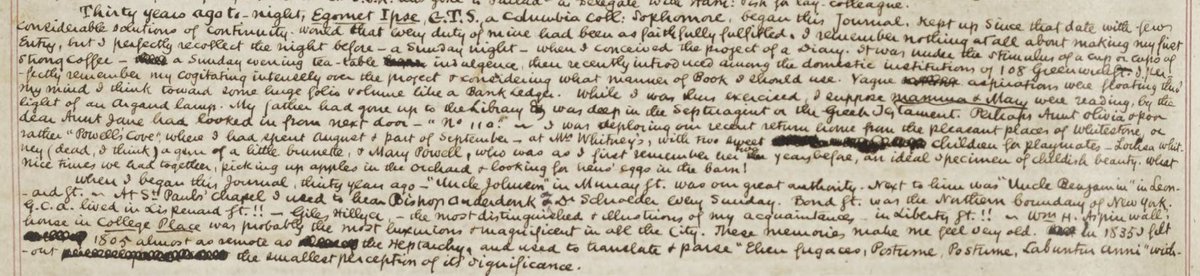 Delegate with Ham: Fish for my colleague.
Thirty years ago to-night, Egomet Ipse, G.T.S. a Columbia Coll: Sophomore, began this Journal. Kept up since that date with few
considerable solutions of continuity. Would that every duty of mine had been as faithfully fulfilled. I remember nothing at all about making my first
Entry, but I perfectly recollect the night before - a Sunday night - when I conceived the project of a Diary. It was under the stimulus of a cup or cups of
strong coffee - a Sunday evening tea-table indulgence, then recently introduced among the domestic institutions of 108 Greenwich St. I per-
-fectly remember my cogitating intensely over the project & considering what manner of Book I should use. Vague aspirations were floating thro'
my mind I think toward some huge folio volume like a Bank Ledger. While I was thus exercised, I suppose mamma & Mary were reading, by the
light of an Argand lamp. My father had gone up to the Library & was deep in the Septuagint or the Greek Testament. Perhaps Aunt Olivia & poor
dear Aunt Jane had looked in from next door - "No 110." - I was deploring our recent return home from the pleasant places of Whitestone, or
rather "Powell's Cove" where I had spent August & part of September - at Mrs Whitney's, with two sweet children for playmates - Lochea Whit-
ney (dead, I think) a gem of a little brunette, & Mary Powell, who was as I first remember her two years before, an ideal specimen of childish beauty. What
nice times we had together, picking up apples in the orchard & looking for hens' eggs in the barn!
When I began this Journal, thirty years ago - "Uncle Johnson" in Murray St. was our great authority. Next to him was "Uncle Benjamin" in Leon-
-ard St. - At St. Pauls' chapel I used to hear Bishop Onderdonk & Dr Schroeder every Sunday. Bond St. was the Northern boundary of New York.
G.C.A. lived in Lispenard St.!! - Giles Hillyer, - the most distinguished & illustrious of my acquaintances, in Liberty St.!! - Wm H. Aspinwall's
house in College Place was probably the most luxurious & magnificent in all the City. These memories make me feel very old. In 1835 I felt
1805 almost as remote as the Heptarchy, and used to translate & parse "Eheu fugaces, Postume, Postume, Labuntur anni" with-
-out the smallest perception of its significance.